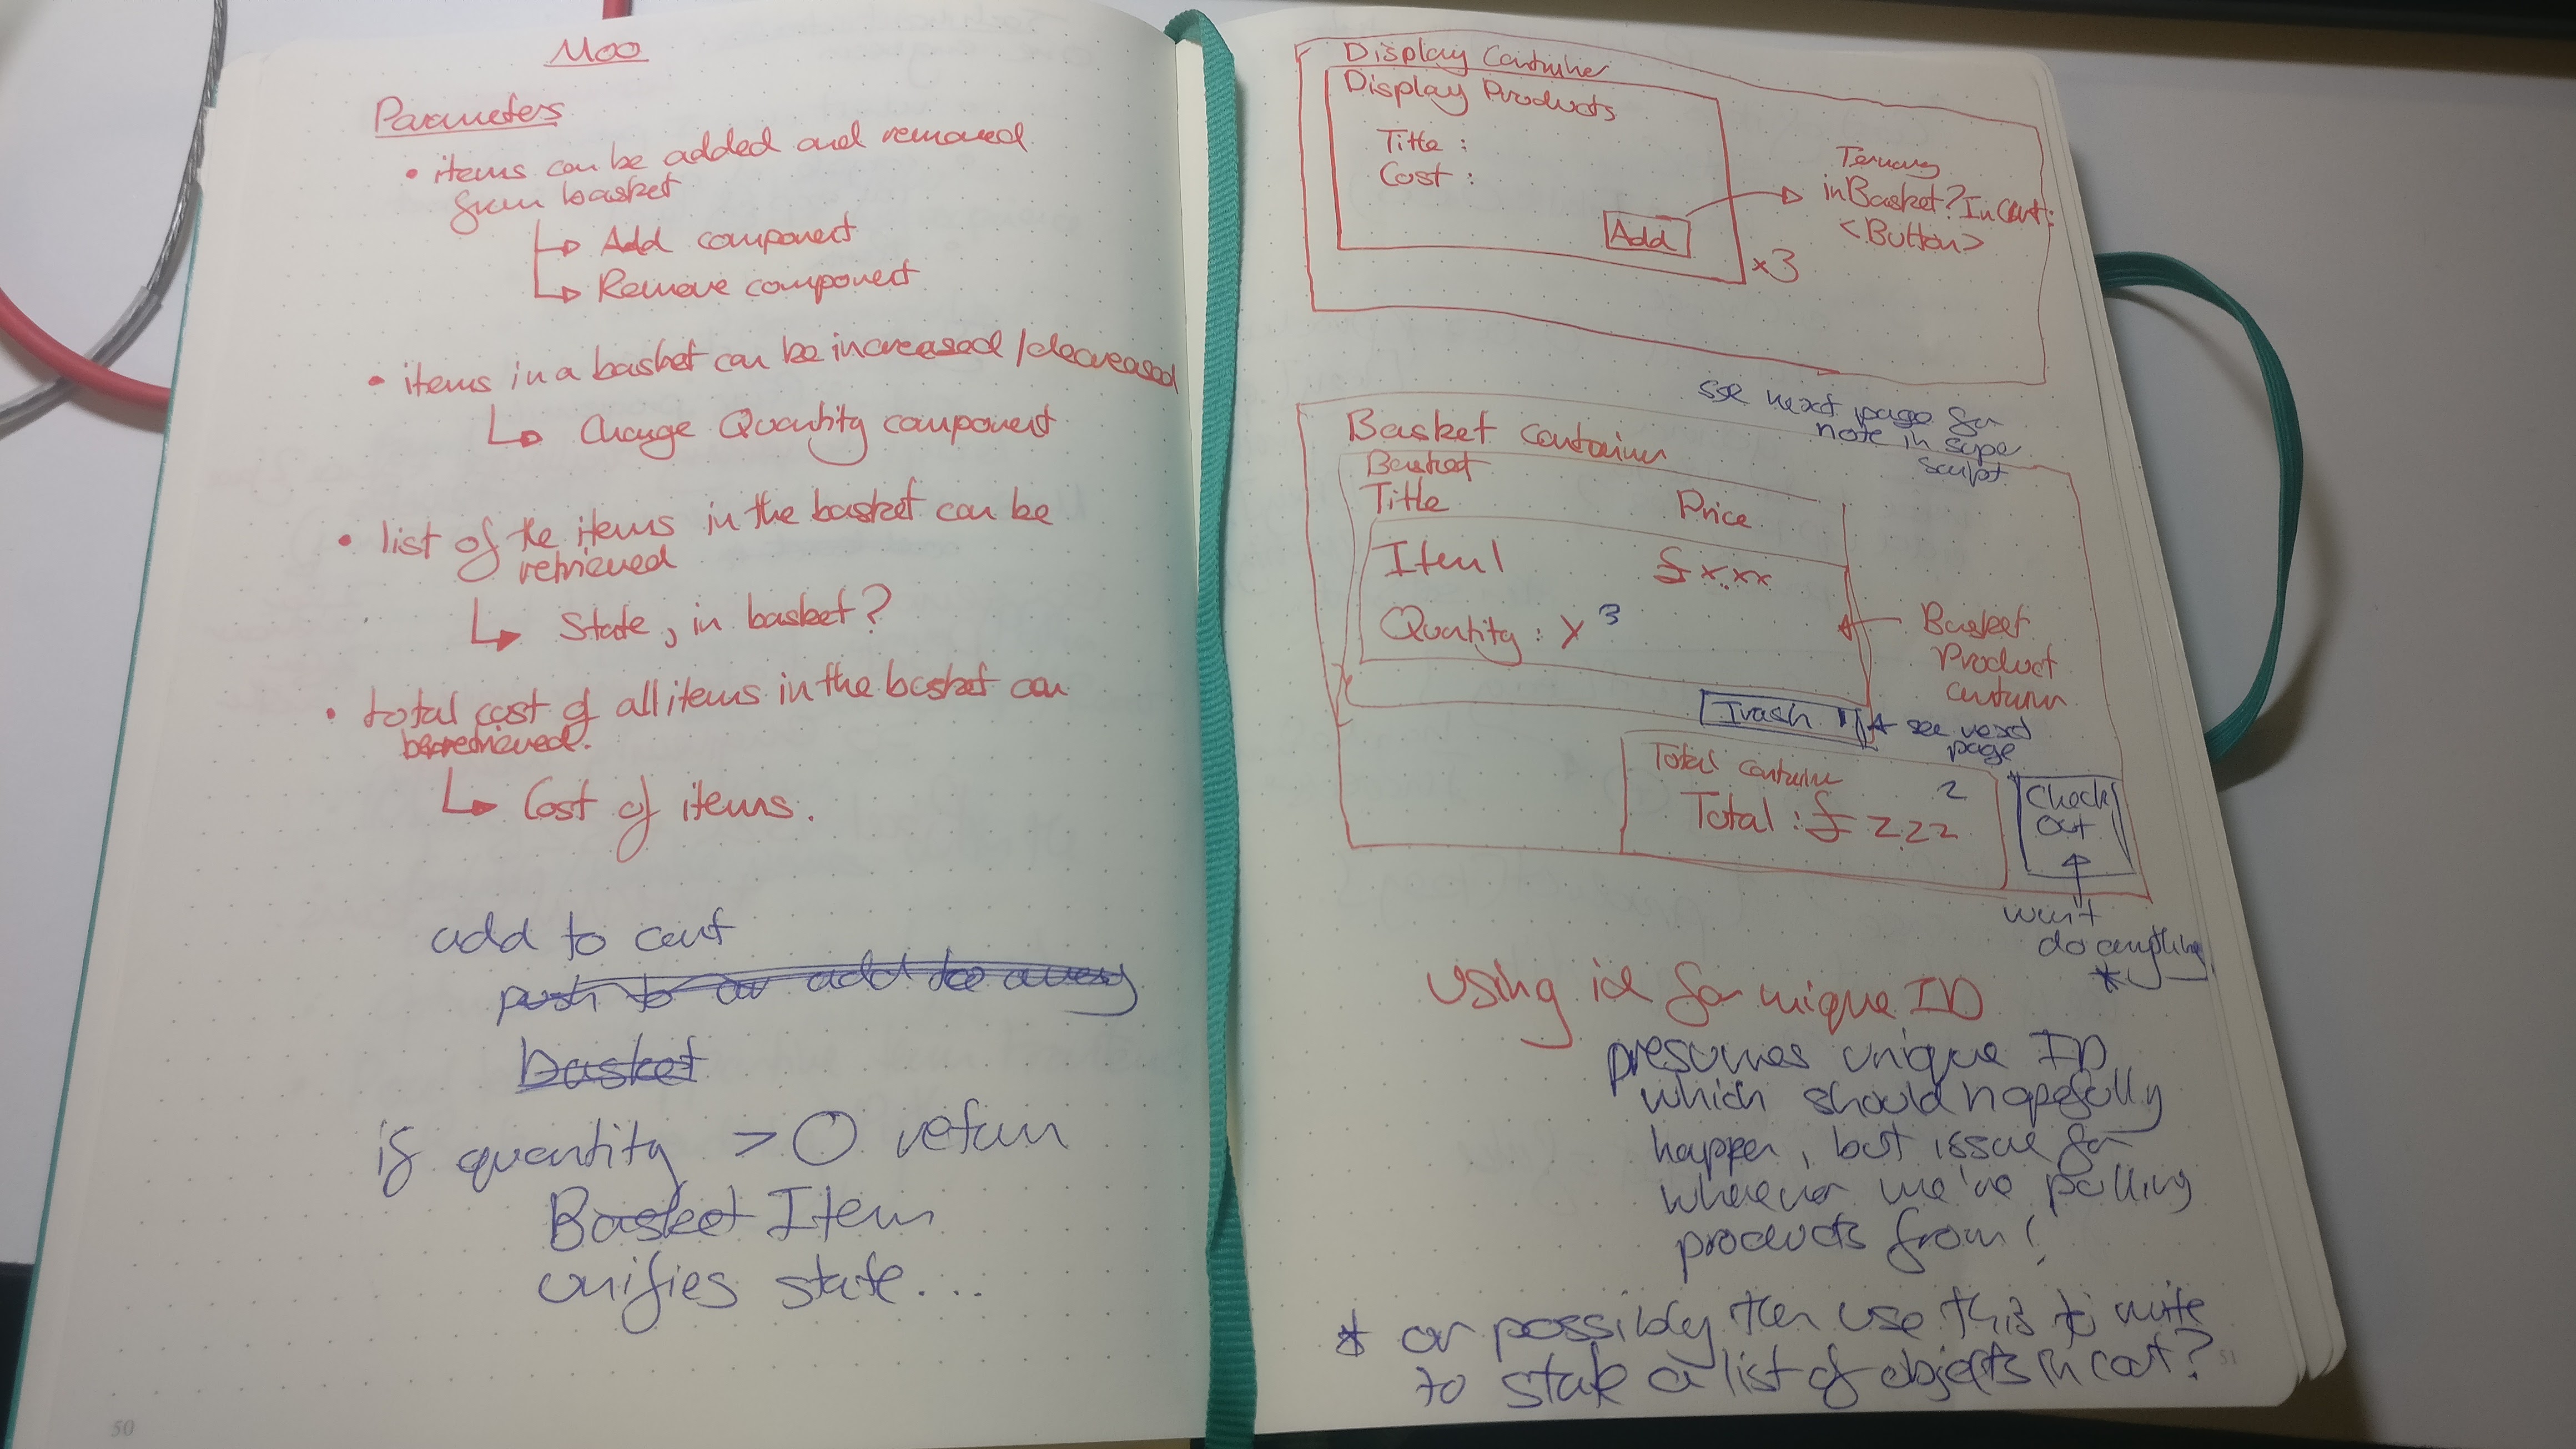 Moo
Parameters
• items can be added and removed
from basket
↳ Add component
↳ Remove component
• items in a basket can be increased / decreased
↳ Change Quantity component
• list of the items in the basket can be
retrieved
↳ State, in basket?
• total cost of all items in the basket can
be retrieved.
↳ Cost of items.
add to cart
push to or add to array
basket
if quantity > 0 return
Basket Item
unifies state...
50
Display Container
Display Products
Title :
Cost :
Add
x3
Ternary
inBasket? InCart:
<Button>
see next page for
note in supe
script
Basket container
Basket
Title Price
Item 1 £x.xx
Quantity : y 3
Basket
Product
container
Trash 1
see next
page
Total container
2
Total : £ z.zz
Check
out
won't
do anything
*
using id for unique ID
presumes unique ID
which should hopefully
happen, but issue for
wherever we're pulling
products from!
* or possibly then use this to write
to state a list of objects in cart?
51